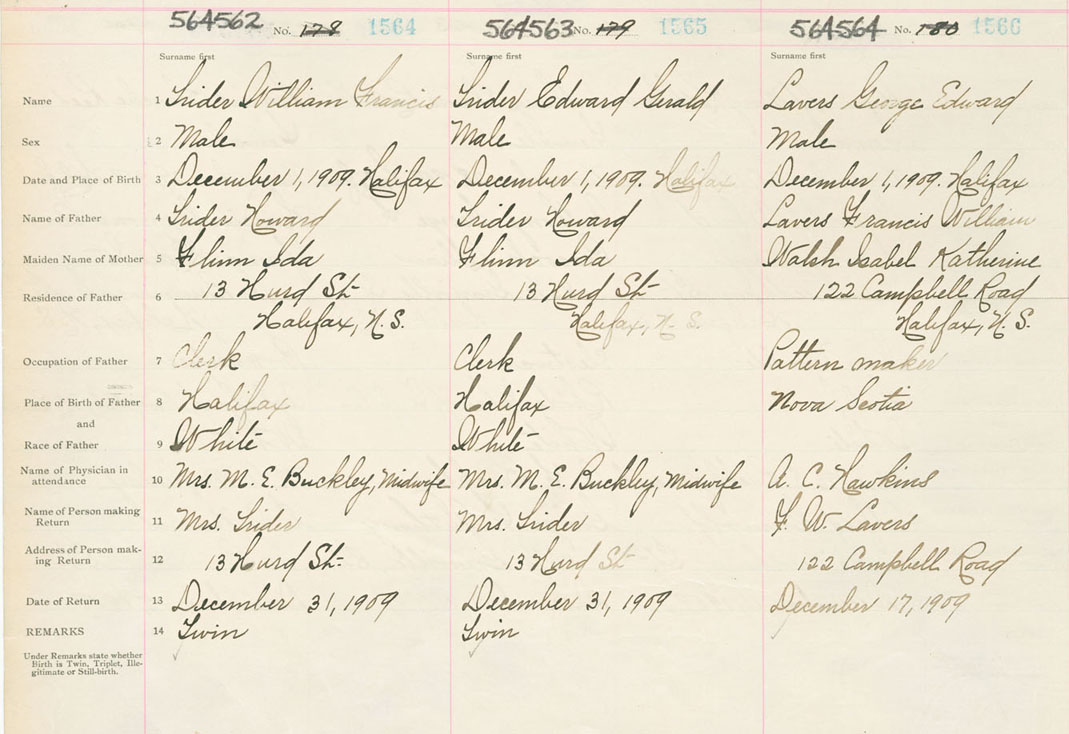 564562 No. 178 1564 564563 No. 179 1565 564564 No. 180 1566
Surname first Surname first Surname first
Name 1 Trider William Francis Trider Edward Gerald Lavers George Edward
Sex 2 Male Male Male
Date and Place of Birth 3 December 1, 1909. Halifax December 1, 1909. Halifax December 1, 1909. Halifax
Name of Father 4 Trider Howard Trider Howard Lavers Francis William
Maiden Name of Mother 5 Flinn Ida Flinn Ida Walsh Isabel Katherine
Residence of Father 6 13 Hurd St. 13 Hurd St. 122 Campbell Road
Halifax, N. S. Halifax, N. S. Halifax, N. S.
Occupation of Father 7 Clerk Clerk Pattern maker
Place of Birth of Father 8 Halifax Halifax Nova Scotia
and
Race of Father 9 White White
Name of Physician in
attendance 10 Mrs. M. E. Buckley, Midwife Mrs. M. E. Buckley, Midwife A. C. Hawkins
Name of Person making
Return 11 Mrs. Trider Mrs. Trider F. W. Lavers
Address of Person mak-
ing Return 12 13 Hurd St. 13 Hurd St. 122 Campbell Road
Date of Return 13 December 31, 1909 December 31, 1909 December 17, 1909
REMARKS 14 Twin Twin
Under Remarks state whether
Birth is Twin, Triplet, Ille-
gitimate or Still-birth.